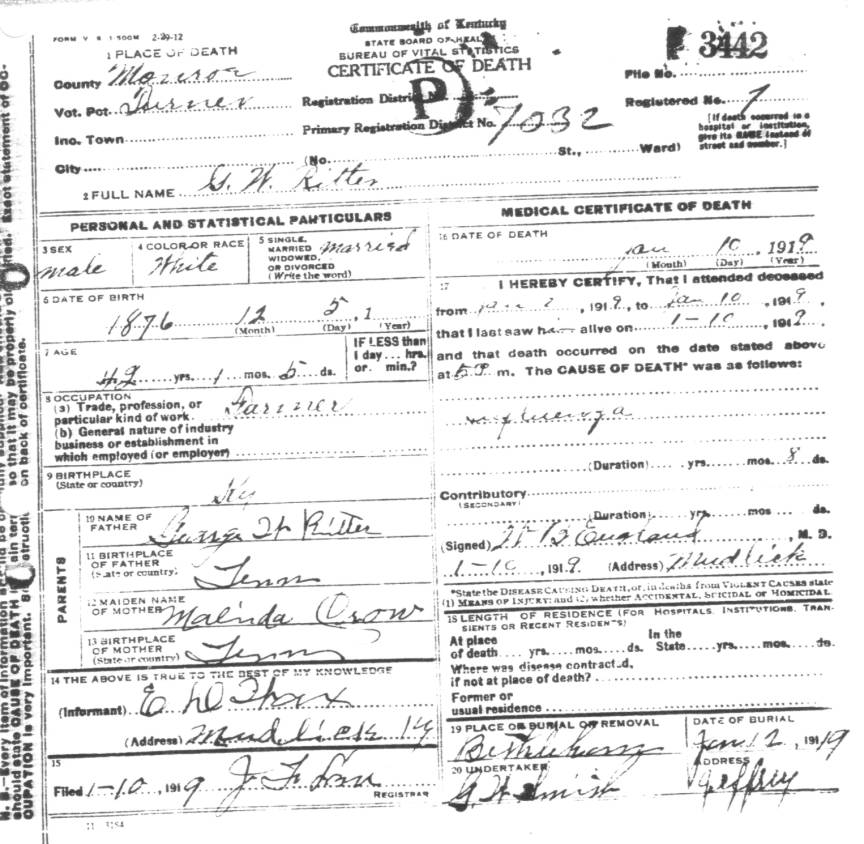 FORM V S 1 500M 2-29-12
Commonwealth of Kentucky
STATE BOARD OF HEALTH
BUREAU OF VITAL STATISTICS
CERTIFICATE OF DEATH
3442
File No.
1 PLACE OF DEATH
County Monroe
Vot. Pct. Turner
Registration District
P
Registered No. 7
Inc. Town
Primary Registration District No. 7032
[If death occurred in a hospital or institution, give its NAME instead of street and number.]
City
(No. St., Ward)
2 FULL NAME G. W. Ritter
PERSONAL AND STATISTICAL PARTICULARS
3 SEX
male
4 COLOR OR RACE
White
5 SINGLE, MARRIED WIDOWED, OR DIVORCED (Write the word)
Married
6 DATE OF BIRTH
1876 12 5, 1
(Month) (Day) (Year)
7 AGE
42 yrs. 1 mos. 5 ds.
IF LESS than 1 day... hrs. or min.?
8 OCCUPATION
(a) Trade, profession, or particular kind of work. Farmer
(b) General nature of industry business or establishment in which employed (or employer)
9 BIRTHPLACE
(State or country)
Ky
PARENTS
10 NAME OF FATHER George W Ritter
11 BIRTHPLACE OF FATHER (State or country) Tenn
12 MAIDEN NAME OF MOTHER Malinda Crow
13 BIRTHPLACE OF MOTHER (State or country) Tenn
14 THE ABOVE IS TRUE TO THE BEST OF MY KNOWLEDGE
(Informant) E D
(Address) Mudlick Ky
15
Filed 1-10, 1919 J F
REGISTRAR
11 3184
MEDICAL CERTIFICATE OF DEATH
16 DATE OF DEATH
Jan 10, 1919
(Month) (Day) (Year)
17 I HEREBY CERTIFY, That I attended deceased
from Jan 2, 1919, to Jan 10, 1919,
that I last saw him alive on 1-10, 1919
and that death occurred on the date stated above
at 5 m. The CAUSE OF DEATH* was as follows:
influenza
(Duration) yrs. mos. 8 ds.
Contributory
(SECONDARY)
(Duration) yrs. mos ds.
(Signed) W B, M. D.
1-10, 1919 (Address) Mudlick
*State the DISEASE CAUSING DEATH, or, in deaths from VIOLENT CAUSES state
(1) MEANS OF INJURY; and (2) whether ACCIDENTAL, SUICIDAL or HOMICIDAL
18 LENGTH OF RESIDENCE (FOR HOSPITALS, INSTITUTIONS, TRANSIENTS OR RECENT RESIDENTS)
At place of death yrs. mos. ds. In the State yrs. mos. ds.
Where was disease contracted,
if not at place of death?
Former or
usual residence
19 PLACE OR BURIAL OR REMOVAL
DATE OF BURIAL
Jan 12, 1919
20 UNDERTAKER
G W Smith
ADDRESS
Jeffrey
N. B.-Every item of information
should state CAUSE OF DEATH
OCCUPATION is very important.
so that it may be properly
on back of certificate.
Exact statement of OC-